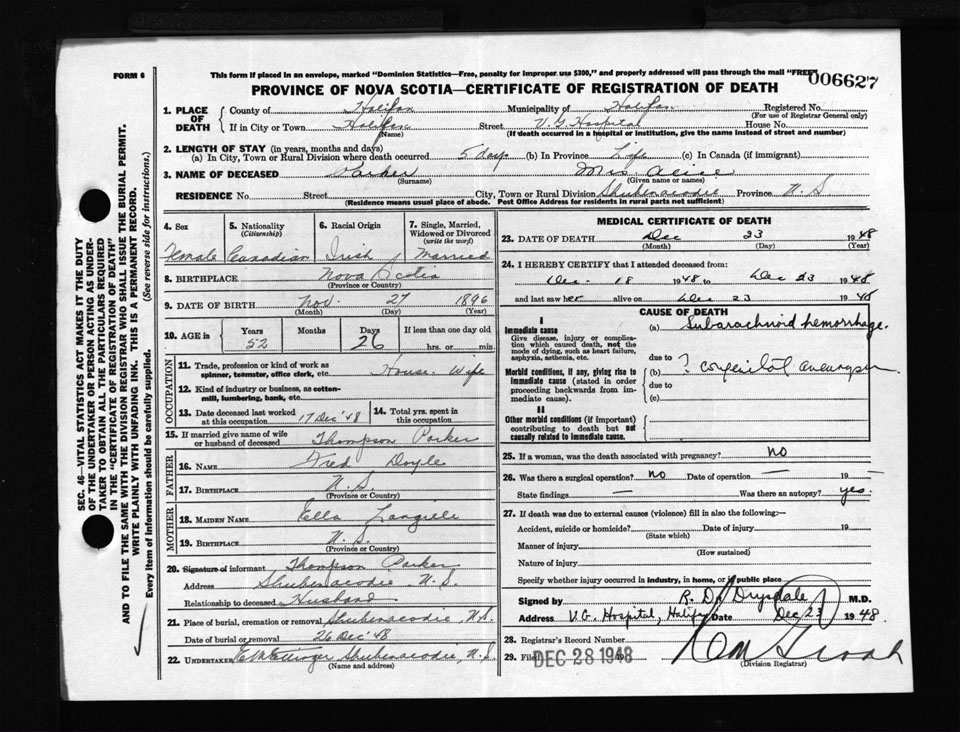 FORM 6
This form if placed in an envelope, marked "Dominion Statistics—Free, penalty for improper use $300," and properly addressed will pass through the mail "FREE"
006627
PROVINCE OF NOVA SCOTIA—CERTIFICATE OF REGISTRATION OF DEATH
1. PLACE OF DEATH County of Halifax Municipality of Halifax Registered No.
(For use of Registrar General only)
If in City or Town Halifax Street V.G. Hospital House No.
(Name) (If death occurred in a hospital or institution, give the name instead of street and number)
2. LENGTH OF STAY (in years, months and days)
(a) In City, Town or Rural Division where death occurred 5 days (b) In Province Life (c) In Canada (if immigrant)
3. NAME OF DECEASED Parker Mrs. Alice
(Surname) (Given name or names)
RESIDENCE No. Street City, Town or Rural Division Shubenacodie Province N.S
(Residence means usual place of abode. Post Office Address for residents in rural parts not sufficient)
4. Sex 5. Nationality (Citizenship) 6. Racial Origin 7. Single, Married, Widowed or Divorced (write the word)
Female Canadian Irish Married
8. BIRTHPLACE Nova Scotia
(Province or Country)
9. DATE OF BIRTH Nov. 27 1896
(Month) (Day) (Year)
10. AGE in Years Months Days If less than one day old
52 26 hrs. or min.
OCCUPATION
11. Trade, profession or kind of work as spinner, teamster, office clerk, etc. House-Wife
12. Kind of industry or business, as cotton-mill, lumbering, bank, etc.
13. Date deceased last worked at this occupation 17 Dec '48 14. Total yrs. spent in this occupation
15. If married give name of wife or husband of deceased Thompson Parker
FATHER
16. NAME Fred Doyle
17. BIRTHPLACE N.S
(Province or Country)
MOTHER
18. MAIDEN NAME Ella
19. BIRTHPLACE N.S.
(Province or Country)
20. Signature of informant Thompson Parker
Address Shubenacodie, N.S.
Relationship to deceased Husband
21. Place of burial, cremation or removal Shubenacodie, N.S.
Date of burial or removal 26 Dec '48
22. UNDERTAKER Shubenacodie, N.S.
(Name and address)
MEDICAL CERTIFICATE OF DEATH
23. DATE OF DEATH Dec 23 1948
(Month) (Day) (Year)
24. I HEREBY CERTIFY that I attended deceased from:
Dec. 18 1948 to Dec 23 1948
and last saw her alive on Dec 23 1948
CAUSE OF DEATH
I
Immediate cause
Give disease, injury or complication which caused death, not the mode of dying, such as heart failure, asphyxia, asthenia, etc.
(a) Subarachnoid hemorrhage.
due to
Morbid conditions, if any, giving rise to immediate cause (stated in order proceeding backwards from immediate cause).
(b) ? congenital aneurysm
due to
(c)
II
Other morbid conditions (if important) contributing to death but not causally related to immediate cause.
25. If a woman, was the death associated with pregnancy? no
26. Was there a surgical operation? no Date of operation — 19 —
State findings — Was there an autopsy? yes.
27. If death was due to external causes (violence) fill in also the following:—
Accident, suicide or homicide? Date of injury 19
(State which)
Manner of injury
(How sustained)
Nature of injury
Specify whether injury occurred in industry, in home, or in public place
Signed by R. D. Drysdale M.D.
Address V.G. Hospital, Halifax Date Dec 23 1948.
28. Registrar's Record Number
29. Filed DEC 28 1948 19
(Division Registrar)
SEC. 46—VITAL STATISTICS ACT MAKES IT THE DUTY
OF THE UNDERTAKER OR PERSON ACTING AS UNDER-
TAKER TO OBTAIN ALL THE PARTICULARS REQUIRED
IN THE "CERTIFICATE OF REGISTRATION OF DEATH"
AND TO FILE THE SAME WITH THE DIVISION REGISTRAR WHO SHALL ISSUE THE BURIAL PERMIT.
WRITE PLAINLY WITH UNFADING INK. THIS IS A PERMANENT RECORD.
Every item of information should be carefully supplied. (See reverse side for instructions.)